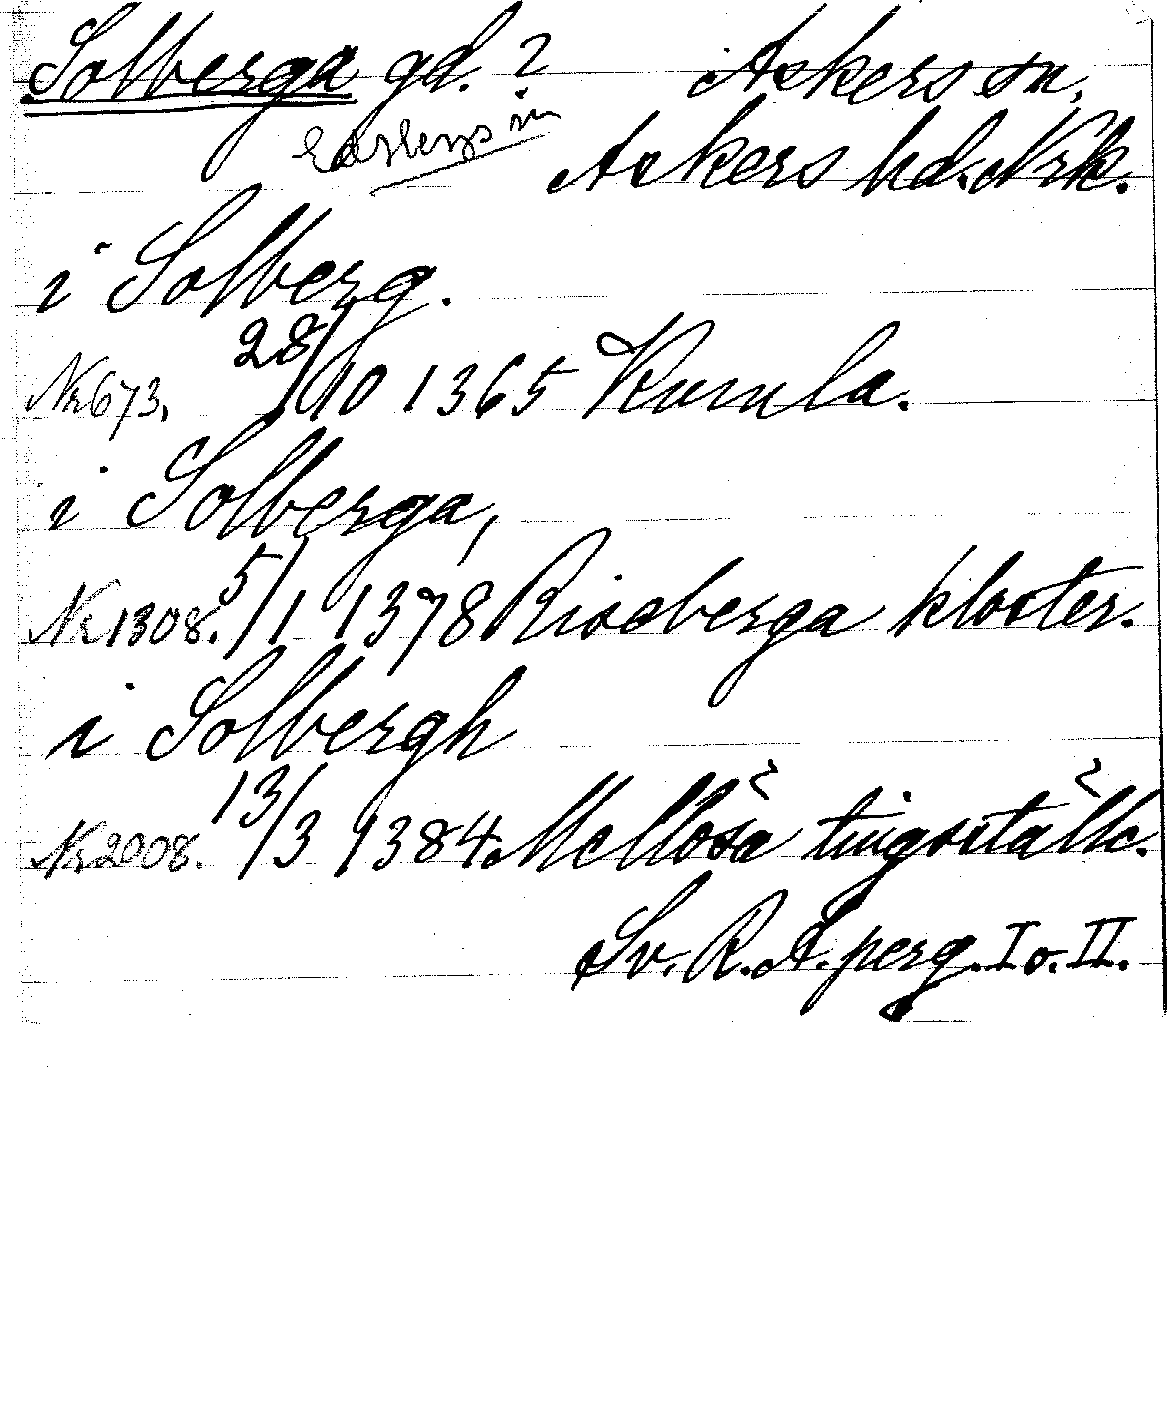 Solberga gd. ? Askers sn,
Askers hd. Nrk.
i Solberg.
Nr 673. 28/10 1365 Kumla.
i Solberga,
Nr 1308. 5/1 1378 Riseberga kloster.
i Solbergh
Nr 2008. 13/3 1384. Mellösa tingställe.
Sv. R. A. perg. I o. II.